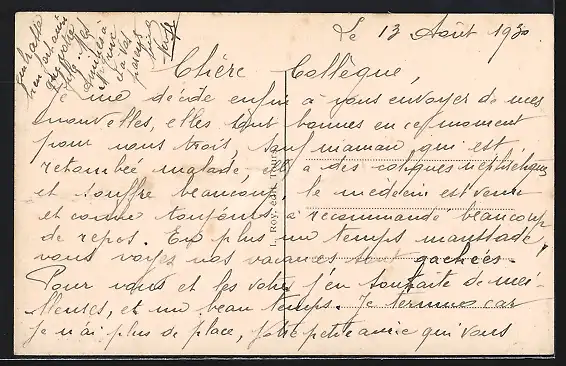 Le 13 Août 1930
Chère Collègue,
Je me décide enfin à vous envoyer de mes
nouvelles, elles sont bonnes en ce moment
pour nous trois, sauf maman qui est
retombée malade, elle a des coliques néphrétiques
et souffre beaucoup, le medecin est venu
et comme toujours a recommandé beaucoup
de repos. En plus un temps maussade,
vous voyez nos vacances sont gachées.
Pour vous et les votres j'en souhaite de mei-
lleures, et un beau temps. Je termine car
je n'ai plus de place, Votre petite amie qui vous
embrasse
bien fort ainsi
que votre
amitiés à
vos
parents
L. Roy, édit. Tours